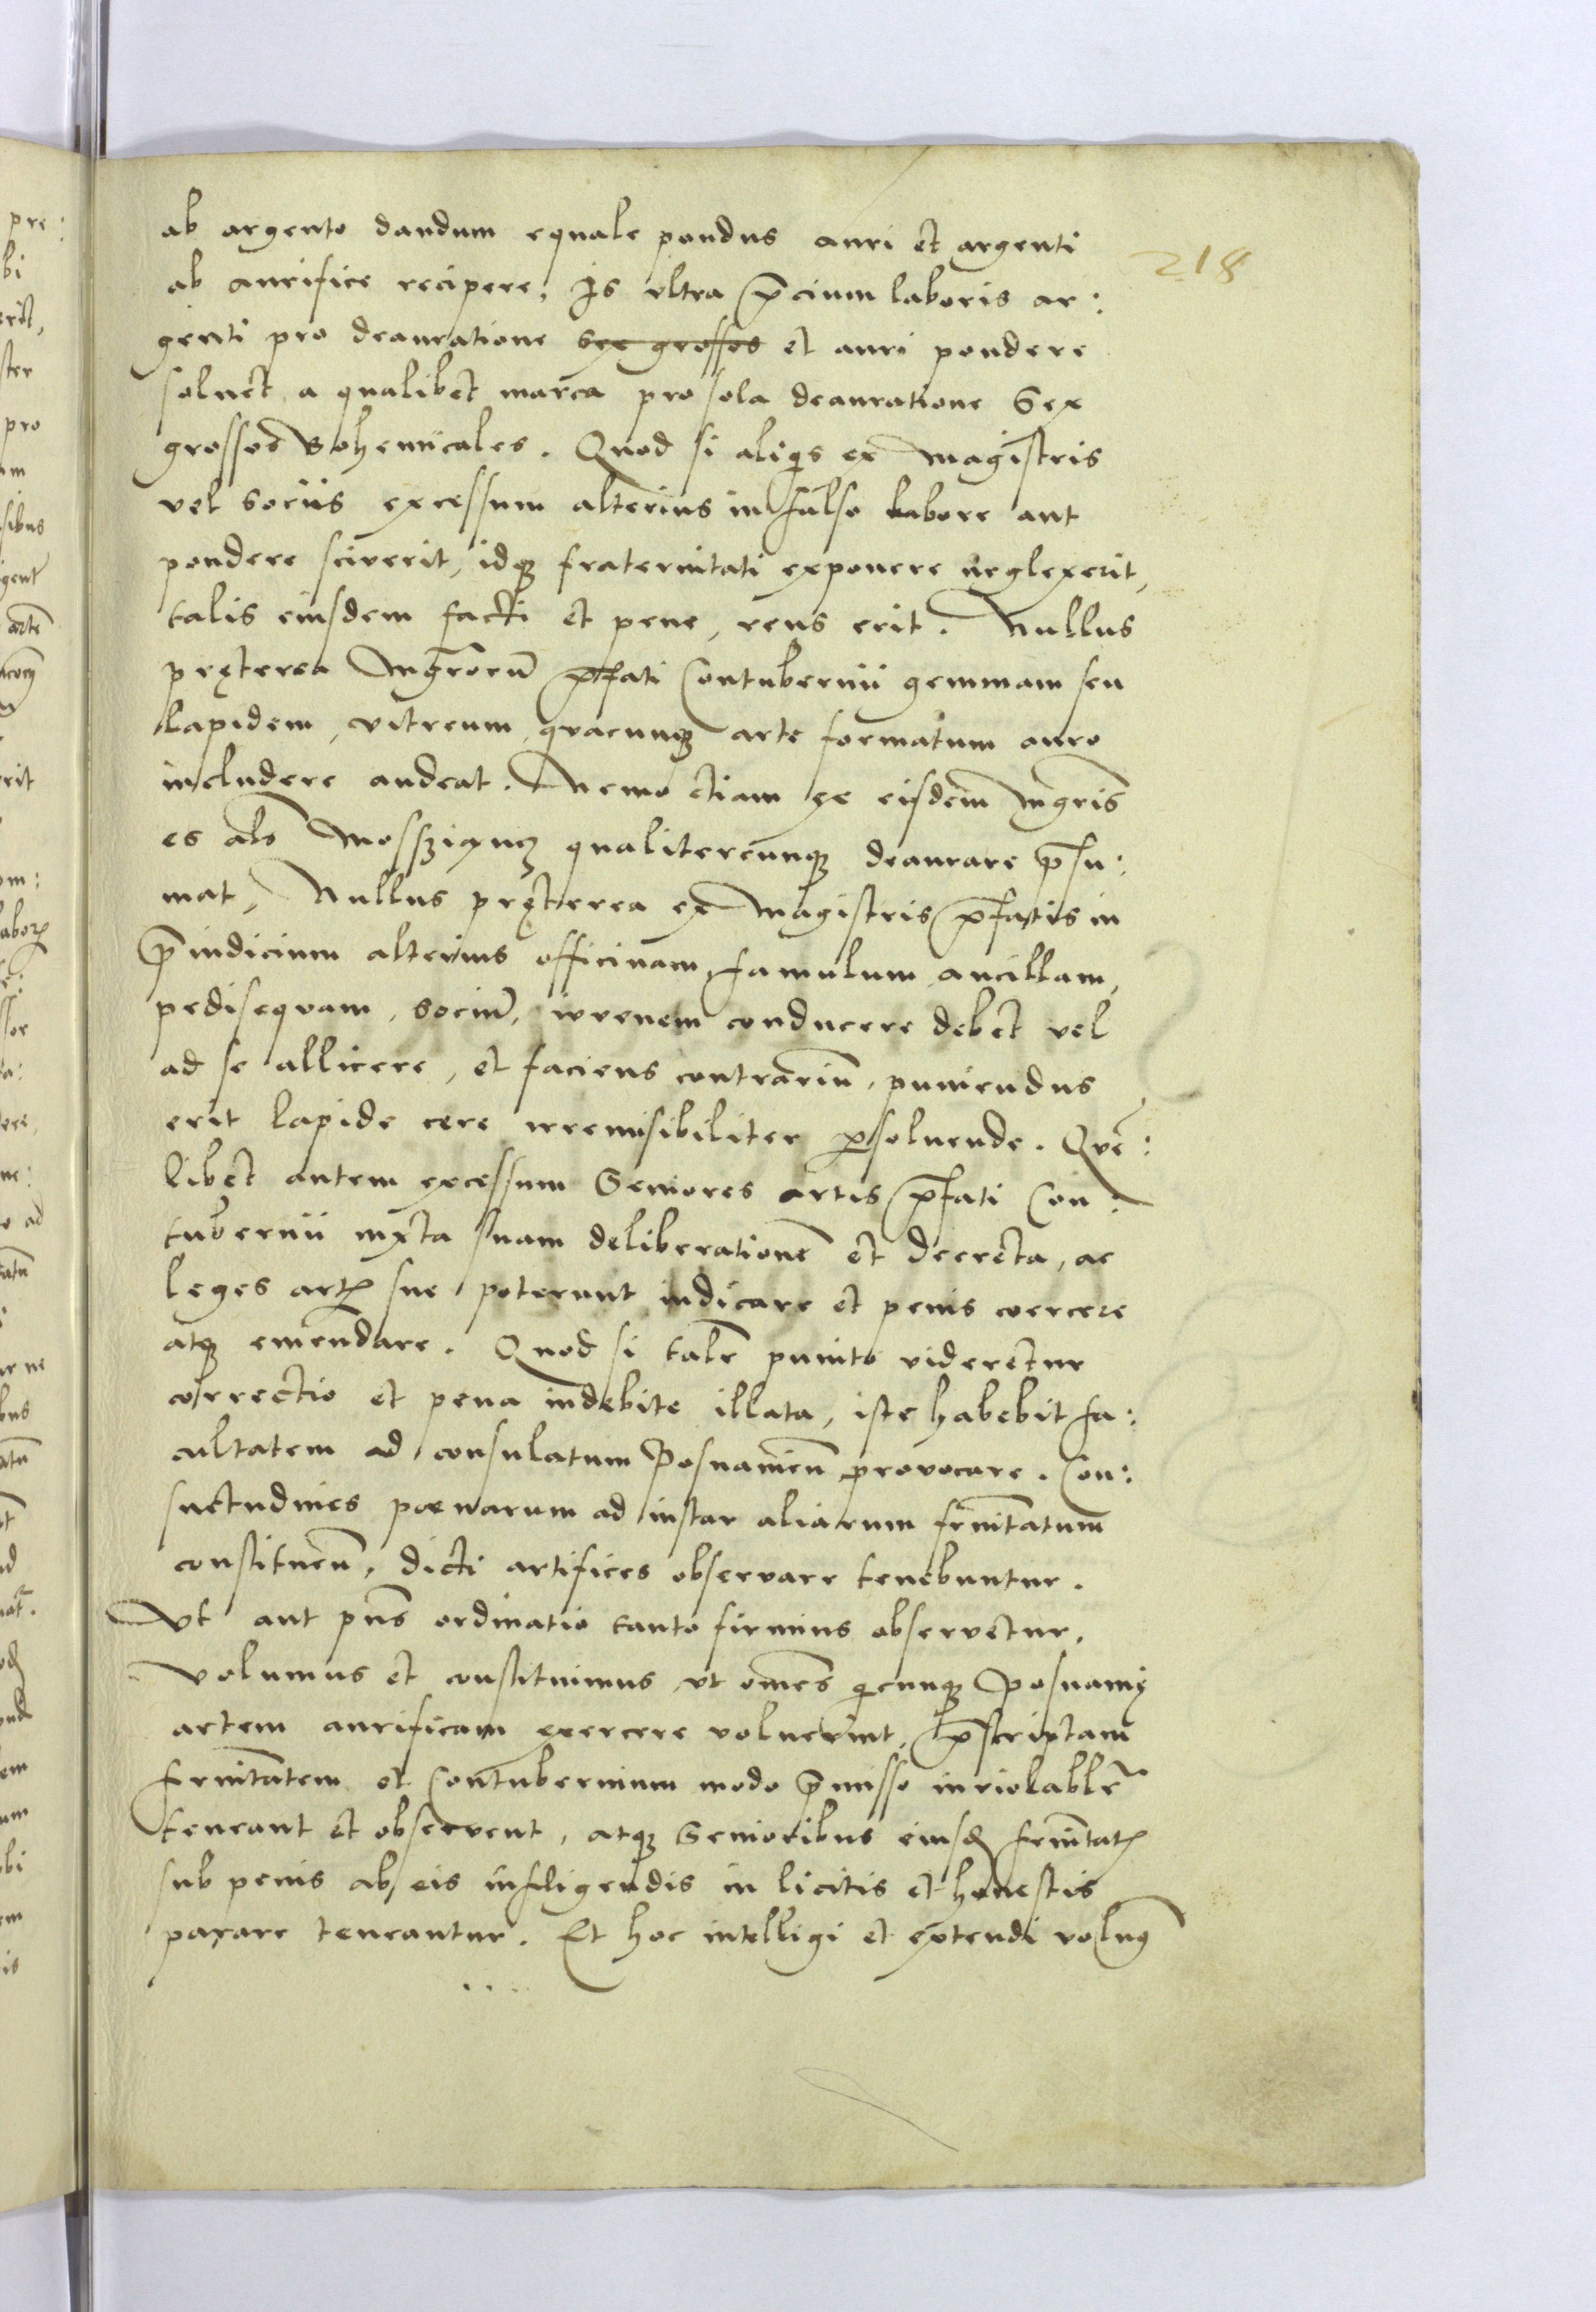 218
ab argento dandum equale pondus auri et argenti
ab aurifice recipere, Is vltra p̄cium laboris ar:
genti pro deauratione sex grossos et auri pondere
soluet a qualibet marca pro sola deauratione Sex
grossos Bohemicales. Quod si aliq̄s ex Magistris
vel Sociis excessum alterius in falso labore aut
pondere sciverit, idq₃ fraternitati exponere neglexerit,
talis eiusdem facti et pene, reus erit. Nullus
pręterea Mgr̄orū p̄fati Contubernii gemmam seu
lapidem, vitreum, quacunq₃ arte formatum auro
includere audeat. Nemo etiam ex eisdem Mgris̄
es als̄ Mossziąncz qualitercunq₃ deaurare p̄su:
mat, Nullus pręterea ex Magistris p̄fatis in
p̄iudicium alterius officinam, famulum ancillam,
pedisequam, Sociū, iuvenem conducere debet vel
ad se allicere, et faciens contrariū, puniendus
erit lapide cere irremisibiliter p̱soluende. Quē:
libet autem excessum Seniores artis p̄fati Con:
tubernii iuxta suam deliberationē et decreta, ac
leges artꝭ sue poterunt iudicare et penis coercere
atq₃ emendare. Quod si talr̄ punito videretur
correctio et pena indebite illata, iste habebit fa:
cultatem ad consulatum Posnanień provocare. Con:
suetudines poenarum ad instar aliarum frnit̄atum
constitueń, dicti artifices observare tenebuntur.
Vt aut pn̄s ordinatio tanto firmius observetur,
Volumus et constituimus, vt omēs q̱cunq₃ Posnanię
artem aurificam exercere voluerint, p̄scriptam
frnit̄atem et Contubernium modo p̄misso inviolablr̄
teneant et observent, atq₃ Senioribus eiusd̄ frnit̄atꝭ
sub penis ab eis infligendis in licitis et honestis
parare teneantur. Et hoc intelligi et extendi volumꝰ